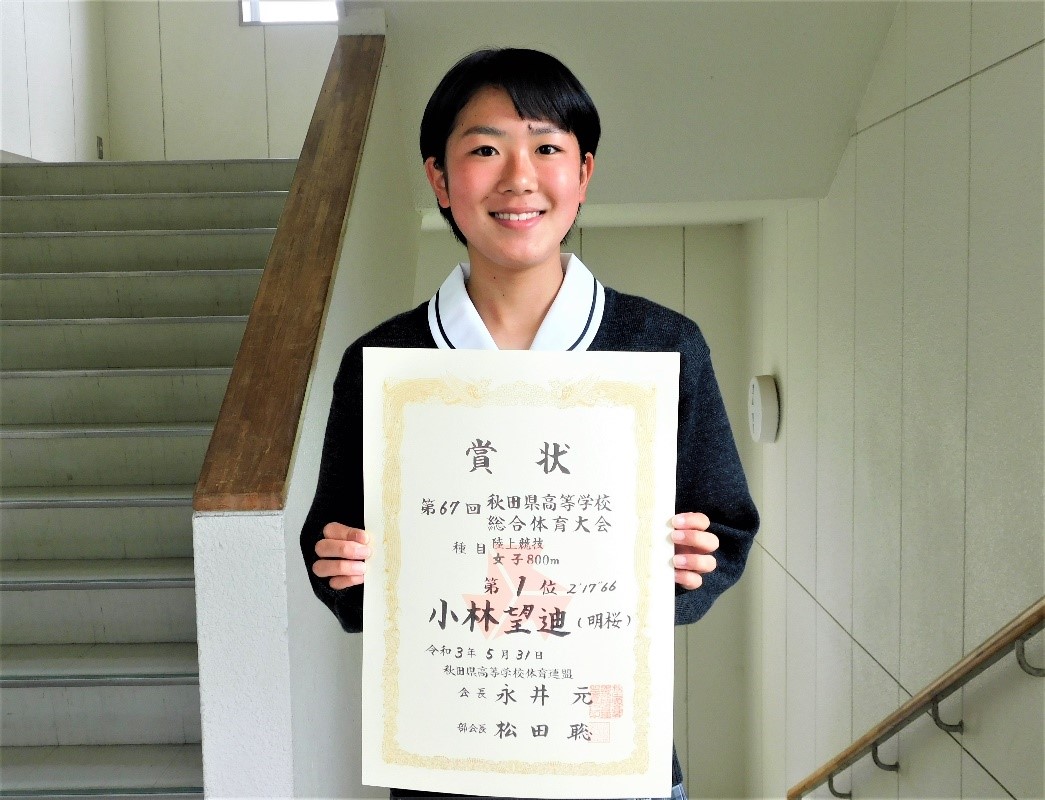 賞状
第67回 秋田県高等学校
総合体育大会
種目 陸上競技
女子800m
第1位 2'17"66
小林望迪(明桜)
令和3年5月31日
秋田県高等学校体育連盟
会長 永井元
部会長 松田聡